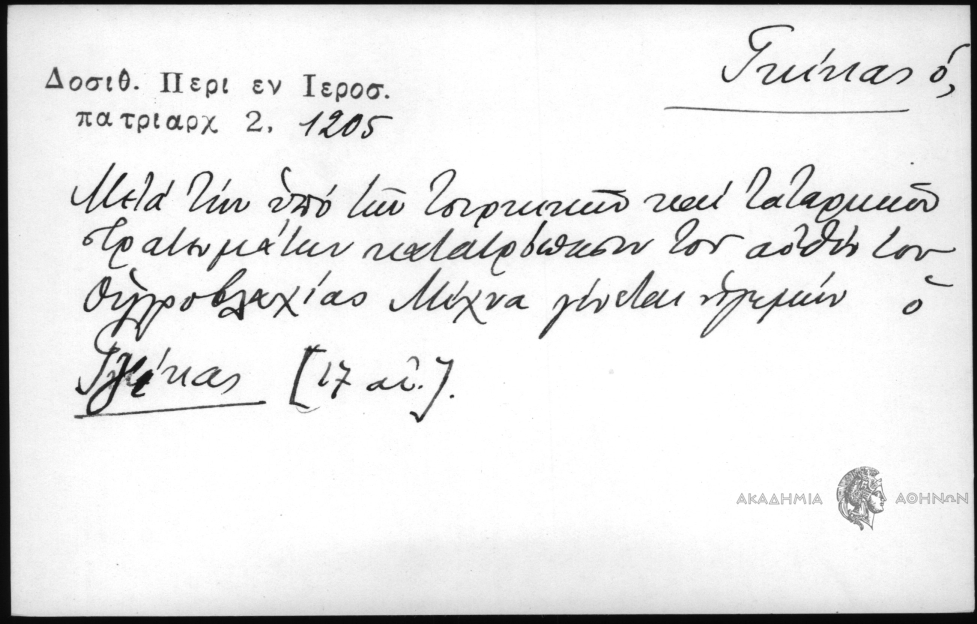 Γκίκας ὁ,
Δοσιθ. Περι εν Ιεροσ.
πατριαρχ 2, 1205
Μετά τήν ὑπό τῶν τουρκικῶν καί ταταρικῶν
στρατευμάτων κατατρόπωσιν τοῦ αὐθέντου
Οὑγγροβλαχίας Μίχνα γίνεται ἡγεμών ὁ
Γκίκας [17 αἰ.].
ΑΚΑΔΗΜΙΑ ΑΘΗΝΩΝ